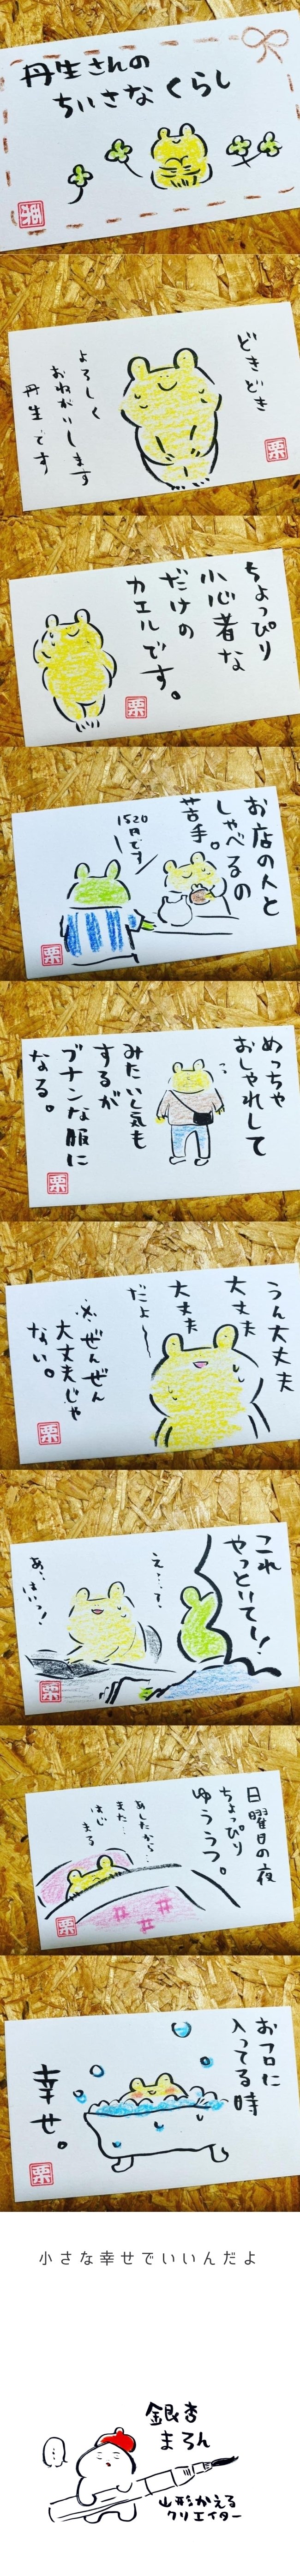 丹生さんの
ちいさなくらし
どきどき
よろしく
おねがいします
丹生です
ちょっぴり
小心者な
だけの
カエルです。
栗
お店の人と
しゃべるの
苦手。
1520
円です
栗
めっちゃ
おしゃれして
みたい気も
するが
ブナンな服に
なる。
栗
うん大丈夫
大丈夫
大丈夫
だよ〜
※ぜんぜん
大丈夫じゃ
ない。
栗
これ
やっといてー!
え…?
あ、はいっ!
栗
日曜日の夜
ちょっぴり
ゆううつ。
あしたから…
また…
はじまる
栗
おフロに
入ってる時
幸せ。
栗
小さな幸せでいいんだよ
銀杏
まろん
山形かえる
クリエイター